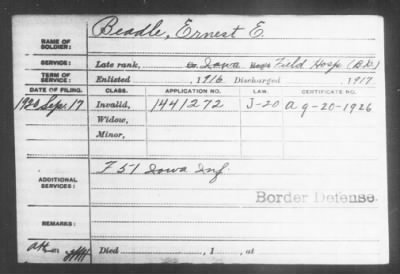 NAME OF SOLDIER: Beadle, Ernest E.
SERVICE: Late rank, Co. Iowa Reg't Field Hosp (B.D.)
TERM OF SERVICE: Enlisted , 1916 Discharged , 1917
DATE OF FILING. CLASS. APPLICATION NO. LAW. CERTIFICATE NO.
1926 Sep. 17 Invalid, 1441272 J-20 A 9-20-1926
Widow,
Minor,
ADDITIONAL SERVICES: F 51 Iowa Inf.
Border Defense.
REMARKS:
Died , 1 , at